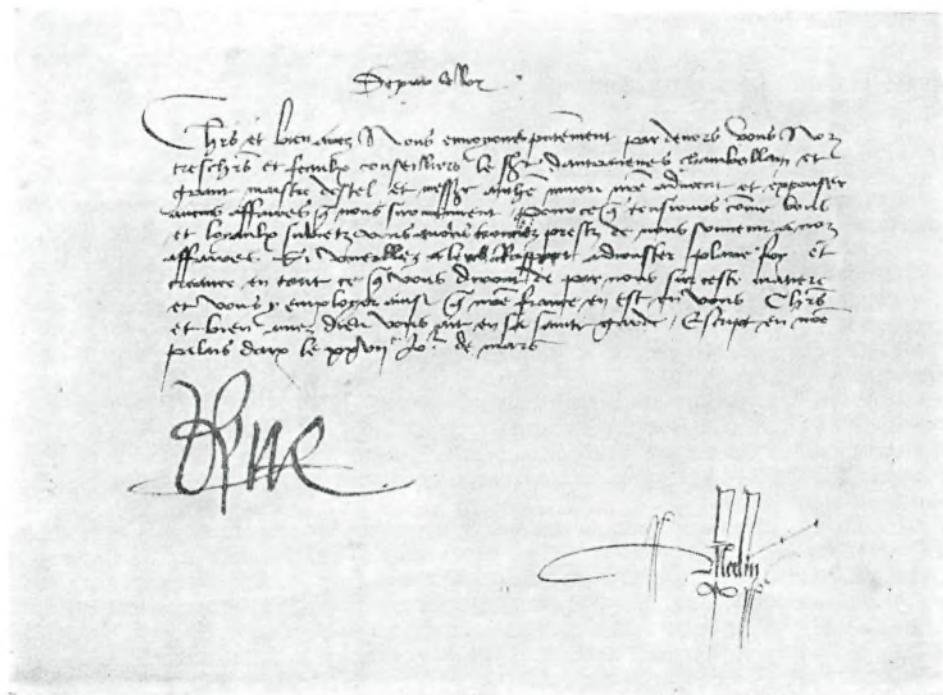 De par le Roy
Chrs et bien amez Nous envoyons pntement par devers vous Noz
treschrs et feaulx conseilliers le sgr d'entrevenes chambellan et
grant maistre dostel et messr anthe mre advocat et exposer
aucuns affaires q nous surviennent Pour ce q tousiours come bons
et loyaulx subgetz vous avons trouvez prestz de nous subvenir a noz
affaires Si vueillez a leur Rapport adiouster plaine foy et
creance en tout ce q vous diront de par nous sur ceste matiere
et vous y employer ainsi q nre fiance en est en vous Chrs
et bien amez dieu vous ait en sa saincte garde Escript en nre
palais daix le xxvii jo de mars
Rene
Merlin